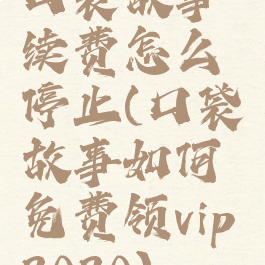 口袋故事
续费怎么
停止(口袋
故事如何
免费领vip
2020)